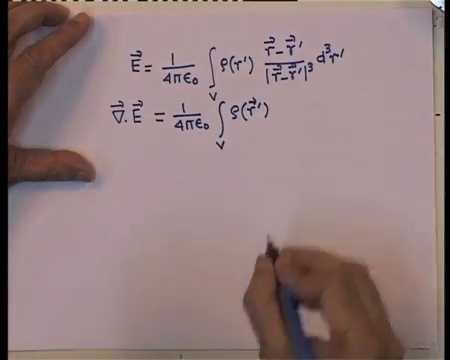 E⃗ = 1/4πε₀ ∫_V ρ(r') (r⃗ - r⃗')/|r⃗ - r⃗'|³ d³r'
∇⃗.E⃗ = 1/4πε₀ ∫_V ρ(r⃗')